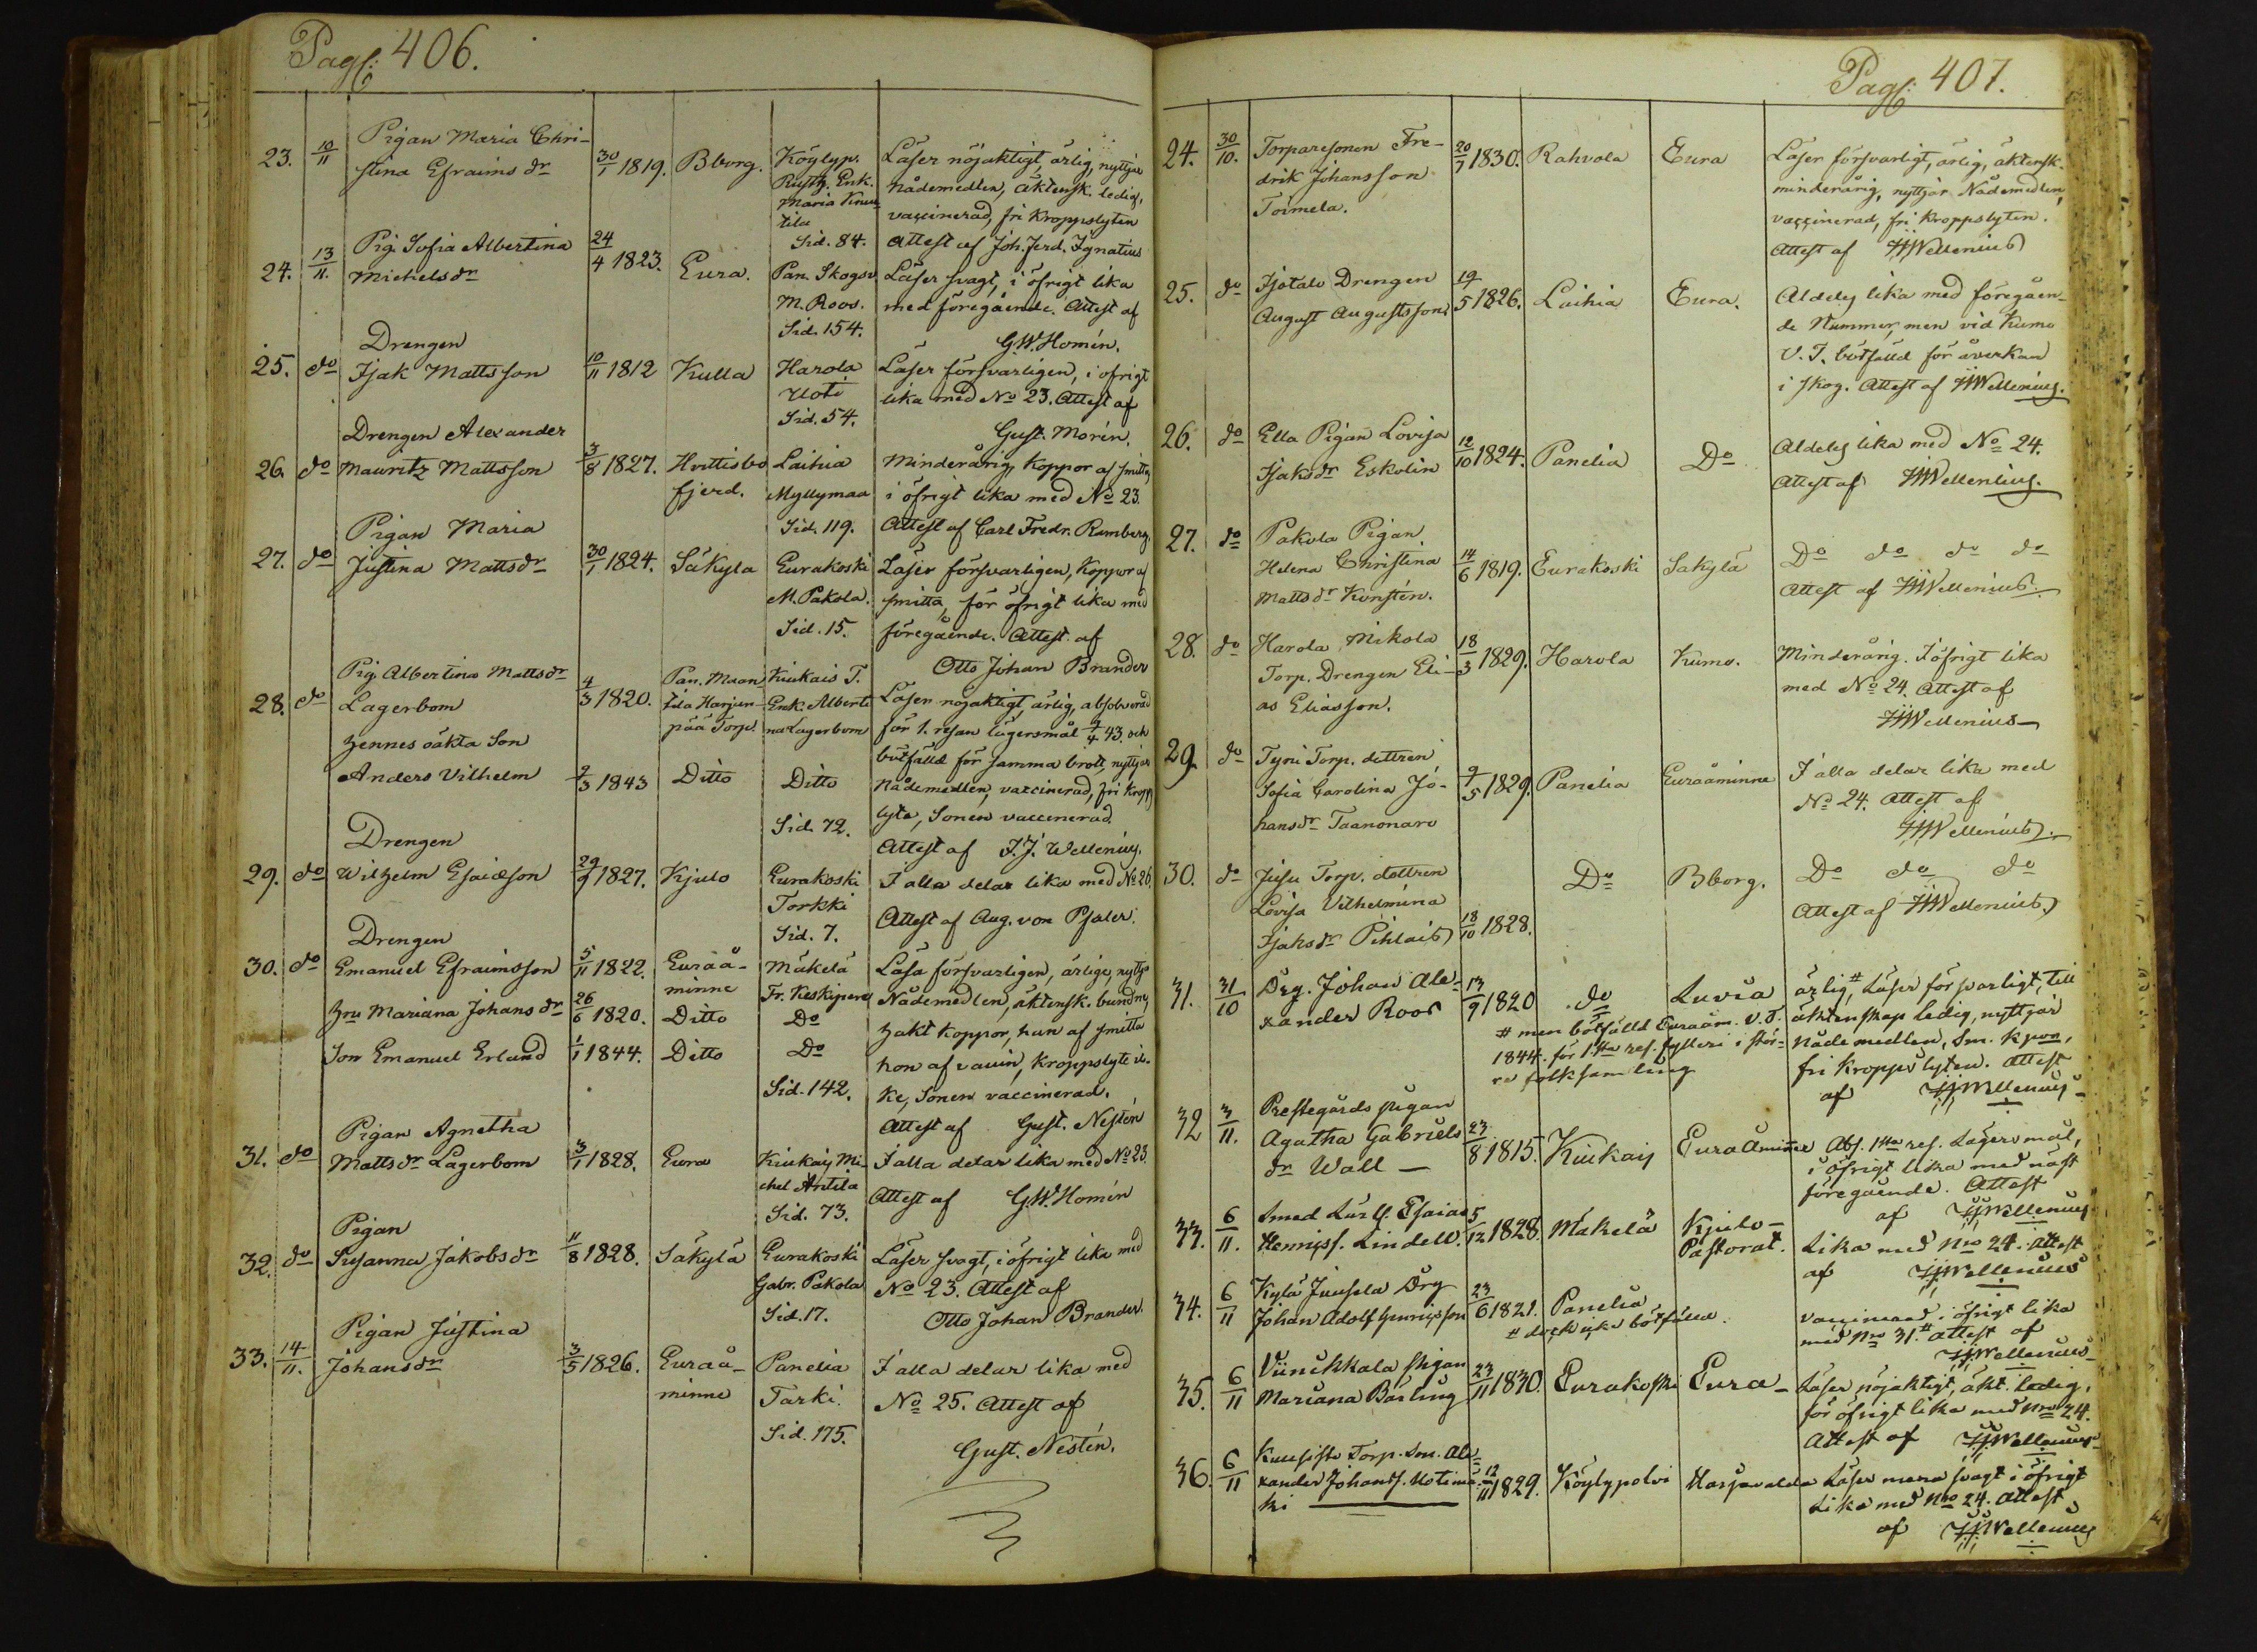 Pag: 406.
23. 10/11 Pigan Maria Chri-
stina Efraims dr 30/1 1819. Bborg. Köylyp.
Rustg. Enk.
Maria
tila
Sid. 84.
Läser nöjaktigt, ärlig, nyttjar
nådemedlen, äktensk. ledig,
vaccinerad, fri Kroppslyten
Attest af Joh. Ferd. Ignatius
24. 13/11. Pig. Sofia Albertina
Michels dr 24/4 1823. Eura. Pan. Skogsv.
M. Roos.
Sid. 154.
Läser svagt, i öfrigt lika
med föregående. Attest af
G.W. Homén.
25. do Drengen
Isak Mattsson 10/11 1812 Kulla Harola
Uoti
Sid. 54.
Läser försvarligen, i öfrigt
lika med No 23. Attest af
Gust. Morin.
26. do Drengen Alexander
Mauritz Mattsson 3/8 1827. Hvittisbo
fjerd. Laihia
Myllymaa
Sid. 119.
Minderårig, Koppor af smitta
i öfrigt lika med No 23.
Attest af Carl Fredr. Ramberg.
27. do Pigan Maria
Justina Matts dr 30/1 1824. Säkylä Eurakoski
M. Pakola.
Sid. 15.
Läser försvarligen, Koppor af
smitta, för öfrigt lika med
föregående. Attest af
Otto Johan Brander
28. do Pig. Albertina Matts dr
Lagerbom 4/3 1820. Pan. Maan
tila Harjun-
pää Torp. Kiukais T.
Enk. Alberti
na Lagerbom
Läser nöjaktigt, ärlig, absolverad
för 1. resan lägersmål 9/4 43. och
hennes oäkta Son
Anders Vilhelm 9/3 1843 Ditto Ditto
Sid. 72.
bötfälld för samma brott, nyttjar
Nådemedlen, vaccinerad, fri Kropps
lyte, Sonen vaccinerad.
Attest af J.J. Wellenius.
29. do Drengen
Wilhelm Esaiasson 29/9 1827. Kjulo Eurakoski
Torkki
Sid. 7.
I alla delar lika med No 26.
Attest af Aug. von Psaler.
30. do Drengen
Emanuel Efraimsson 5/11 1822. Euraå-
minne Mäkelä
Fr. Keskipere
Hru Mariana Johans dr 26/6 1820. Ditto Do
Son Emanuel Erland 1/1 1844. Ditto Do
Sid. 142.
Läsa försvarligen, ärlige, nyttja
Nådemedlen, äktensk. bundne,
haft Koppor, han af smitta
hon af vaccin, Kroppslyte ic-
ke, Sonen vaccinerad.
Attest af Gust. Nestén
31. do Pigan Agnetha
Matts dr Lagerbom 3/1 1828. Eura Kiukais Mi-
chel Anttila
Sid. 73.
I alla delar lika med No 23.
Attest af G.W. Homén
32. do Pigan
Susanna Jakobs dr 11/8 1828. Säkylä Eurakoski
Gabr. Pakola
Sid. 17.
Läser svagt, i öfrigt lika med
No 23. Attest af
Otto Johan Brander.
33. 14/11. Pigan Justina
Johans dr 3/5 1826. Euraå-
minne Panelia
Tarki.
Sid. 175.
I alla delar lika med
No 25. Attest af
Gust. Nestén.
Pag: 407.
24. 30/10. Torparesonen Fre-
drik Johansson
Toimela. 20/7 1830. Rahvola Eura
Läser försvarligt, ärlig, äktensk.
minderårig, nyttjar Nådemedlen,
vaccinerad, fri Kroppslyten.
Attest af JJWellenius
25. do Isotalo Drengen
August Augustsson 19/5 1826. Laihia Eura.
Aldeles lika med föregåen-
de Nummer, men vid Kumo
V. T. bötfälld för åverkan
i skog. Attest af JJWellenius.
26. do Ella Pigan Lovisa
Isaks dr Eskolin 12/10 1824. Panelia Do
Aldeles lika med No 24.
Attest af JJWellenius.
27. do Pakola Pigan
Helena Christina
Matts dr Konstén. 14/6 1819. Eurakoski Säkylä
Do do do do
Attest af JJWellenius.
28. do Harola Mikola
Torp. Drengen Eli-
as Eliasson. 18/3 1829. Harola Kumo.
Minderårig. I öfrigt lika
med No 24. Attest af
JJWellenius
29. do Tyni Torp. dottren
Sofia Carolina Jo-
hans dr Taanonaro 9/5 1829. Panelia Euraåminne
I alla delar lika med
No 24. Attest af
JJWellenius.
30. do Jusu Torp. dottren
Lovisa Vilhelmina
Isaks dr Pihlais 18/10 1828. Do Bborg.
Do do do
Attest af JJWellenius.
31. 31/10 Drg. Johan Ale-
xander Roos 13/9 1820 do Luvia
# men bötfälld Euraåm. V. T.
1844. för 1sta res. fylleri i stör-
re folksamling
ärlig#, Läser försvarligt, till
äktenskap ledig, nyttjar
nådemedlen, Sm. kpor,
fri Kropps lyten. Attest
af JJWellenius
32 3/11. Prestegårds pigan
Agatha Gabriels
dr Wall 23/8 1815. Kiukais Euraåminne
Abs. 1sta res. Lägersmål,
i öfrigt lika med näst
föregående. Attest
af JJWellenius
33. 6/11. Smed Lärl. Esaias
Henriss. Lindell. 5/12 1828. Mäkelä Kjulo-
Pastorat.
Lika med Nro 24. Attest
af JJWellenius
34. 6/11 Kylä Juusela Drg
Johan Adolf Henrisson 23/6 1821. Panelia
# dock icke bötfälld.
vaccinerad i öfrigt lika
med Nro 31.# attest af
JJWellenius
35. 6/11 Viinikkala Pigan
Mariana Bärling 23/11 1830. Eurakoski Eura
Läser nöjaktigt, äkt. ledig,
för öfrigt lika med Nro 24.
Attest af JJWellenius
36. 6/11 Kuusisto Torp. Sn. Ale-
xander Johanss. Uotimä-
ki 12/11 1829. Köylypolvi Harjavalda
Läser mera svagt i öfrigt
Lika med Nro 24. Attest
af JJWellenius